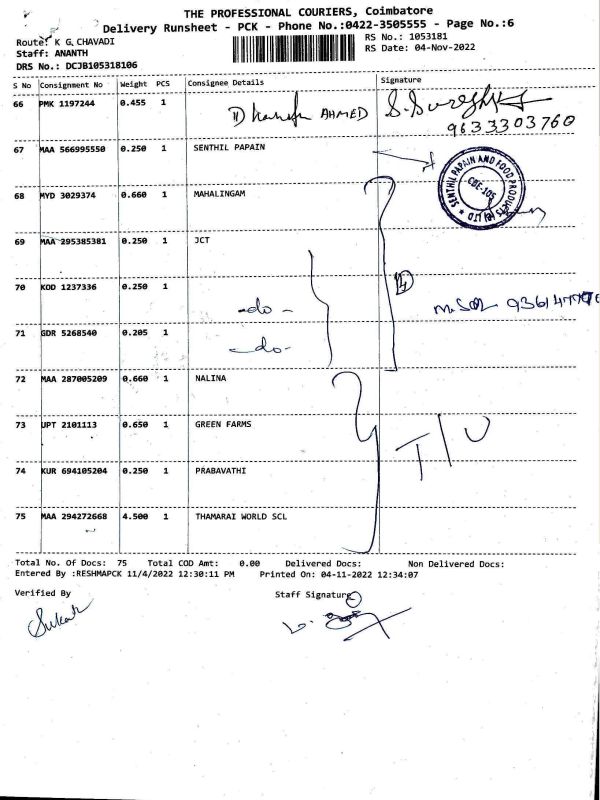 THE PROFESSIONAL COURIERS, Coimbatore
Delivery Runsheet - PCK - Phone No.:0422-3505555 - Page No.:6
Route: K G CHAVADI
RS No.: 1053181
Staff: ANANTH
RS Date: 04-Nov-2022
DRS No.: DCJB105318106
S No Consignment No Weight PCS Consignee Details Signature
66 PMK 1197244 0.455 1 AHMED 9633303760
67 MAA 566995550 0.250 1 SENTHIL PAPAIN
SENTHIL PAPAIN AND FOOD PRODUCTS (P) LTD
CBE-105
68 MYD 3029374 0.660 1 MAHALINGAM
69 MAA 295385381 0.250 1 JCT
70 KOD 1237336 0.250 1 -do-
71 GDR 5268540 0.205 1 -do-
72 MAA 287005209 0.660 1 NALINA
73 UPT 2101113 0.650 1 GREEN FARMS
T/U
74 KUR 694105204 0.250 1 PRABAVATHI
75 MAA 294272668 4.500 1 THAMARAI WORLD SCL
Total No. Of Docs: 75 Total COD Amt: 0.00 Delivered Docs: Non Delivered Docs:
Entered By :RESHMAPCK 11/4/2022 12:30:11 PM Printed On: 04-11-2022 12:34:07
Verified By Staff Signature